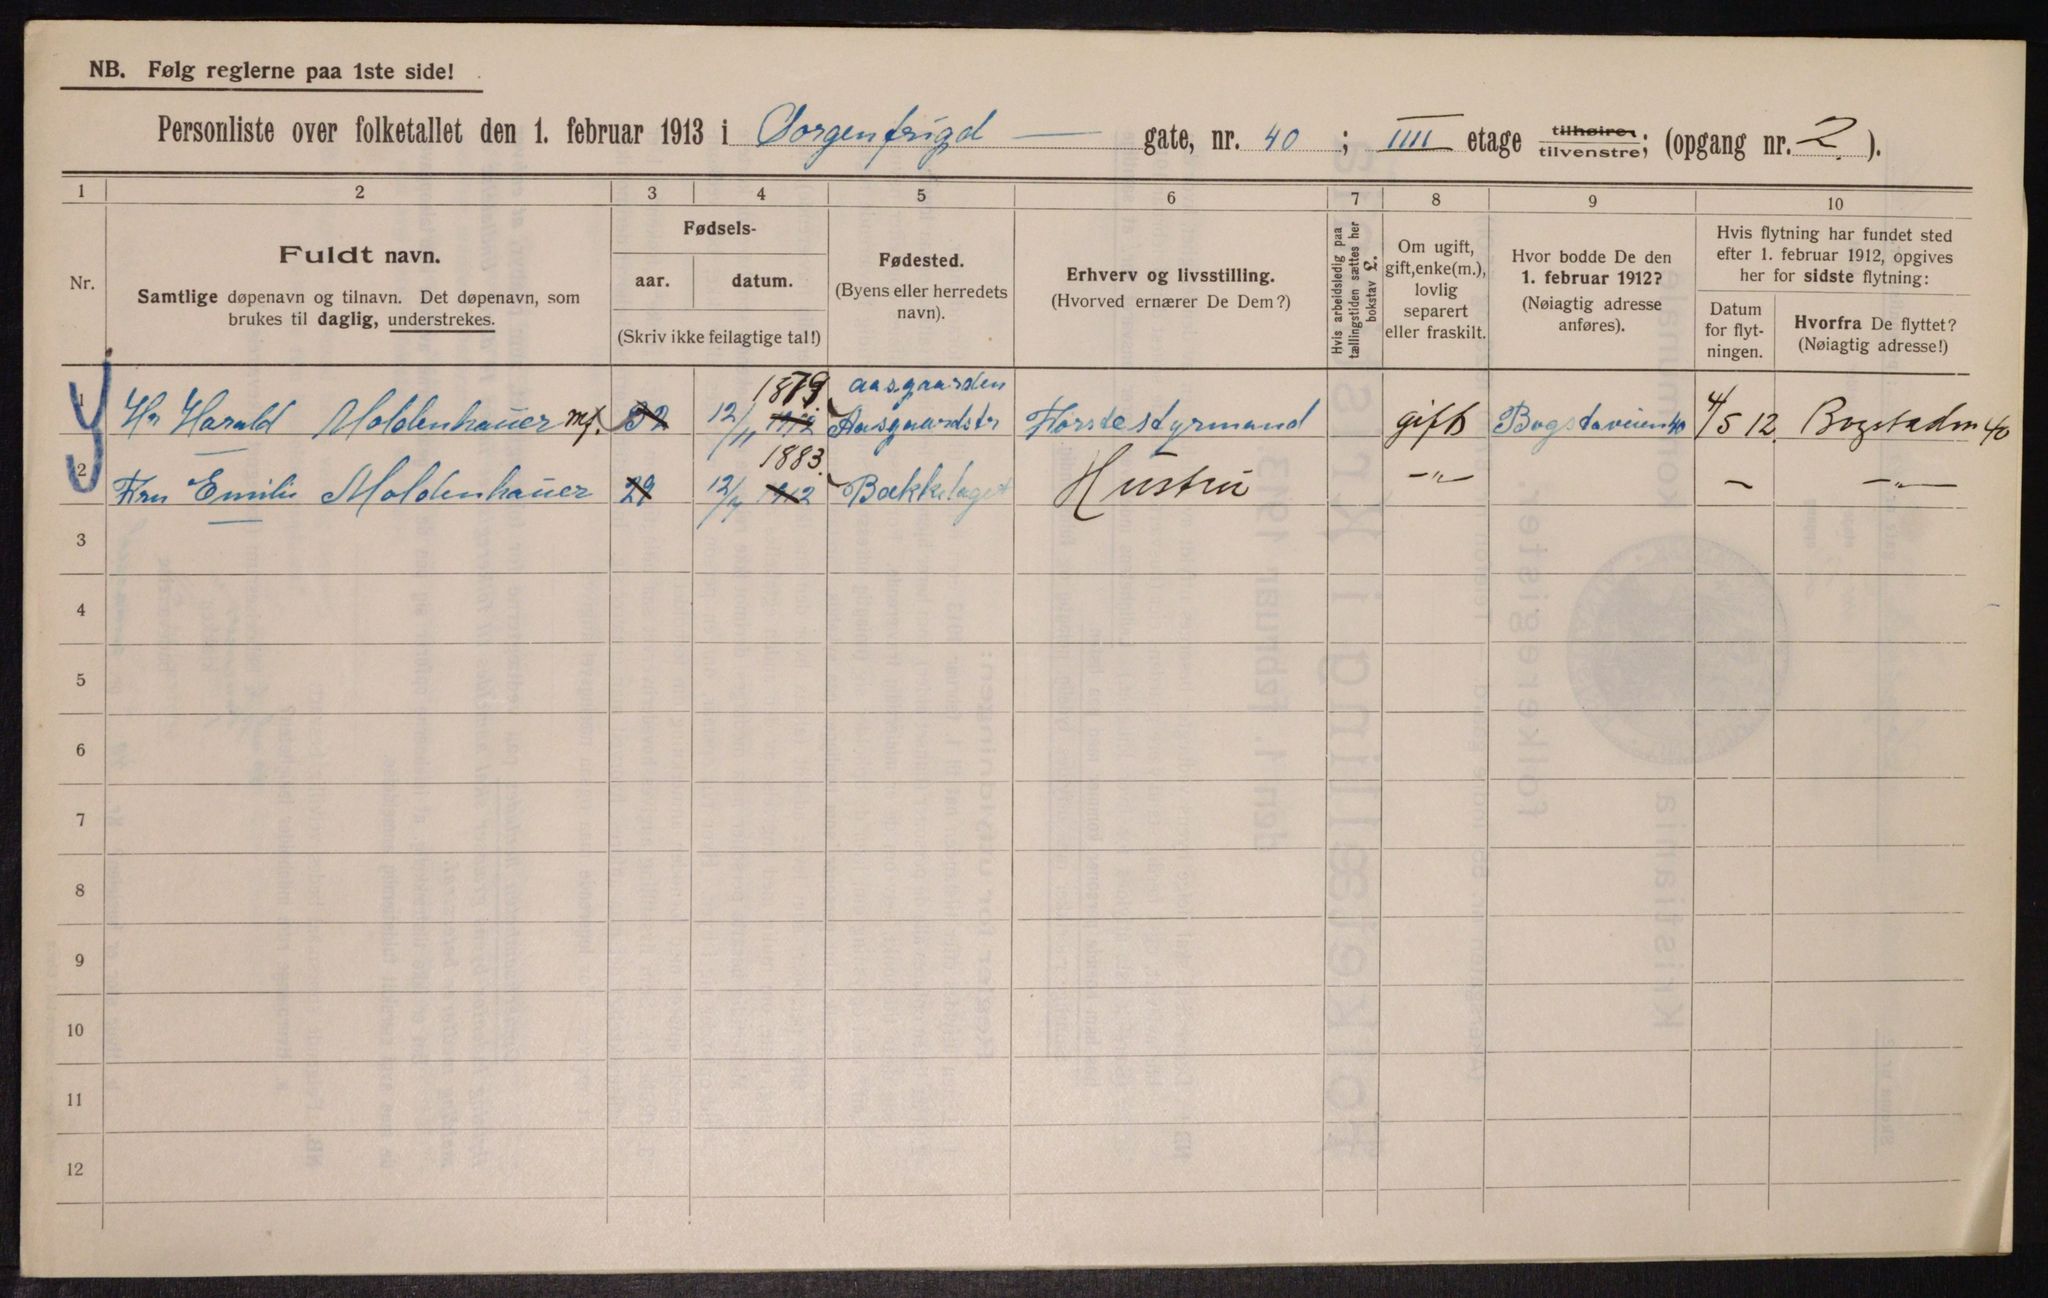 NB. Følg reglerne paa 1ste side!
Personliste over folketallet den 1. februar 1913 i Sorgenfrigd — gate, nr. 40; IIII etage tilhøire tilvenstre; (opgang nr. 2.).
1 2 3 4 5 6 7 8 9 10
Nr.
Fuldt navn.
Samtlige døpenavn og tilnavn. Det døpenavn, som
brukes til daglig, understrekes.
Fødsels-
aar. datum.
(Skriv ikke feilagtige tal!)
Fødested.
(Byens eller herredets
navn).
Erhverv og livsstilling.
(Hvorved ernærer De Dem?)
Hvis arbeidsledig paa
tællingstiden sættes her
bokstav L.
Om ugift,
gift, enke(m.),
lovlig
separert
eller fraskilt.
Hvor bodde De den
1. februar 1912?
(Nøiagtig adresse
anføres).
Hvis flytning har fundet sted
efter 1. februar 1912, opgives
her for sidste flytning:
Datum
for flyt-
ningen.
Hvorfra De flyttet?
(Nøiagtig adresse!)
1879. aasgaarden
1 Hr Harald Moldenhauer 32 12/11 1912 Aasgaardstr Førstestyrmand gift Bogstaveien 40 4/5 12. Bogstadvn 40
1883.
2 Fru Emilie Moldenhauer 29 1912 Bækkelaget Hustru —"— – —"—
3
4
5
6
7
8
9
10
11
12